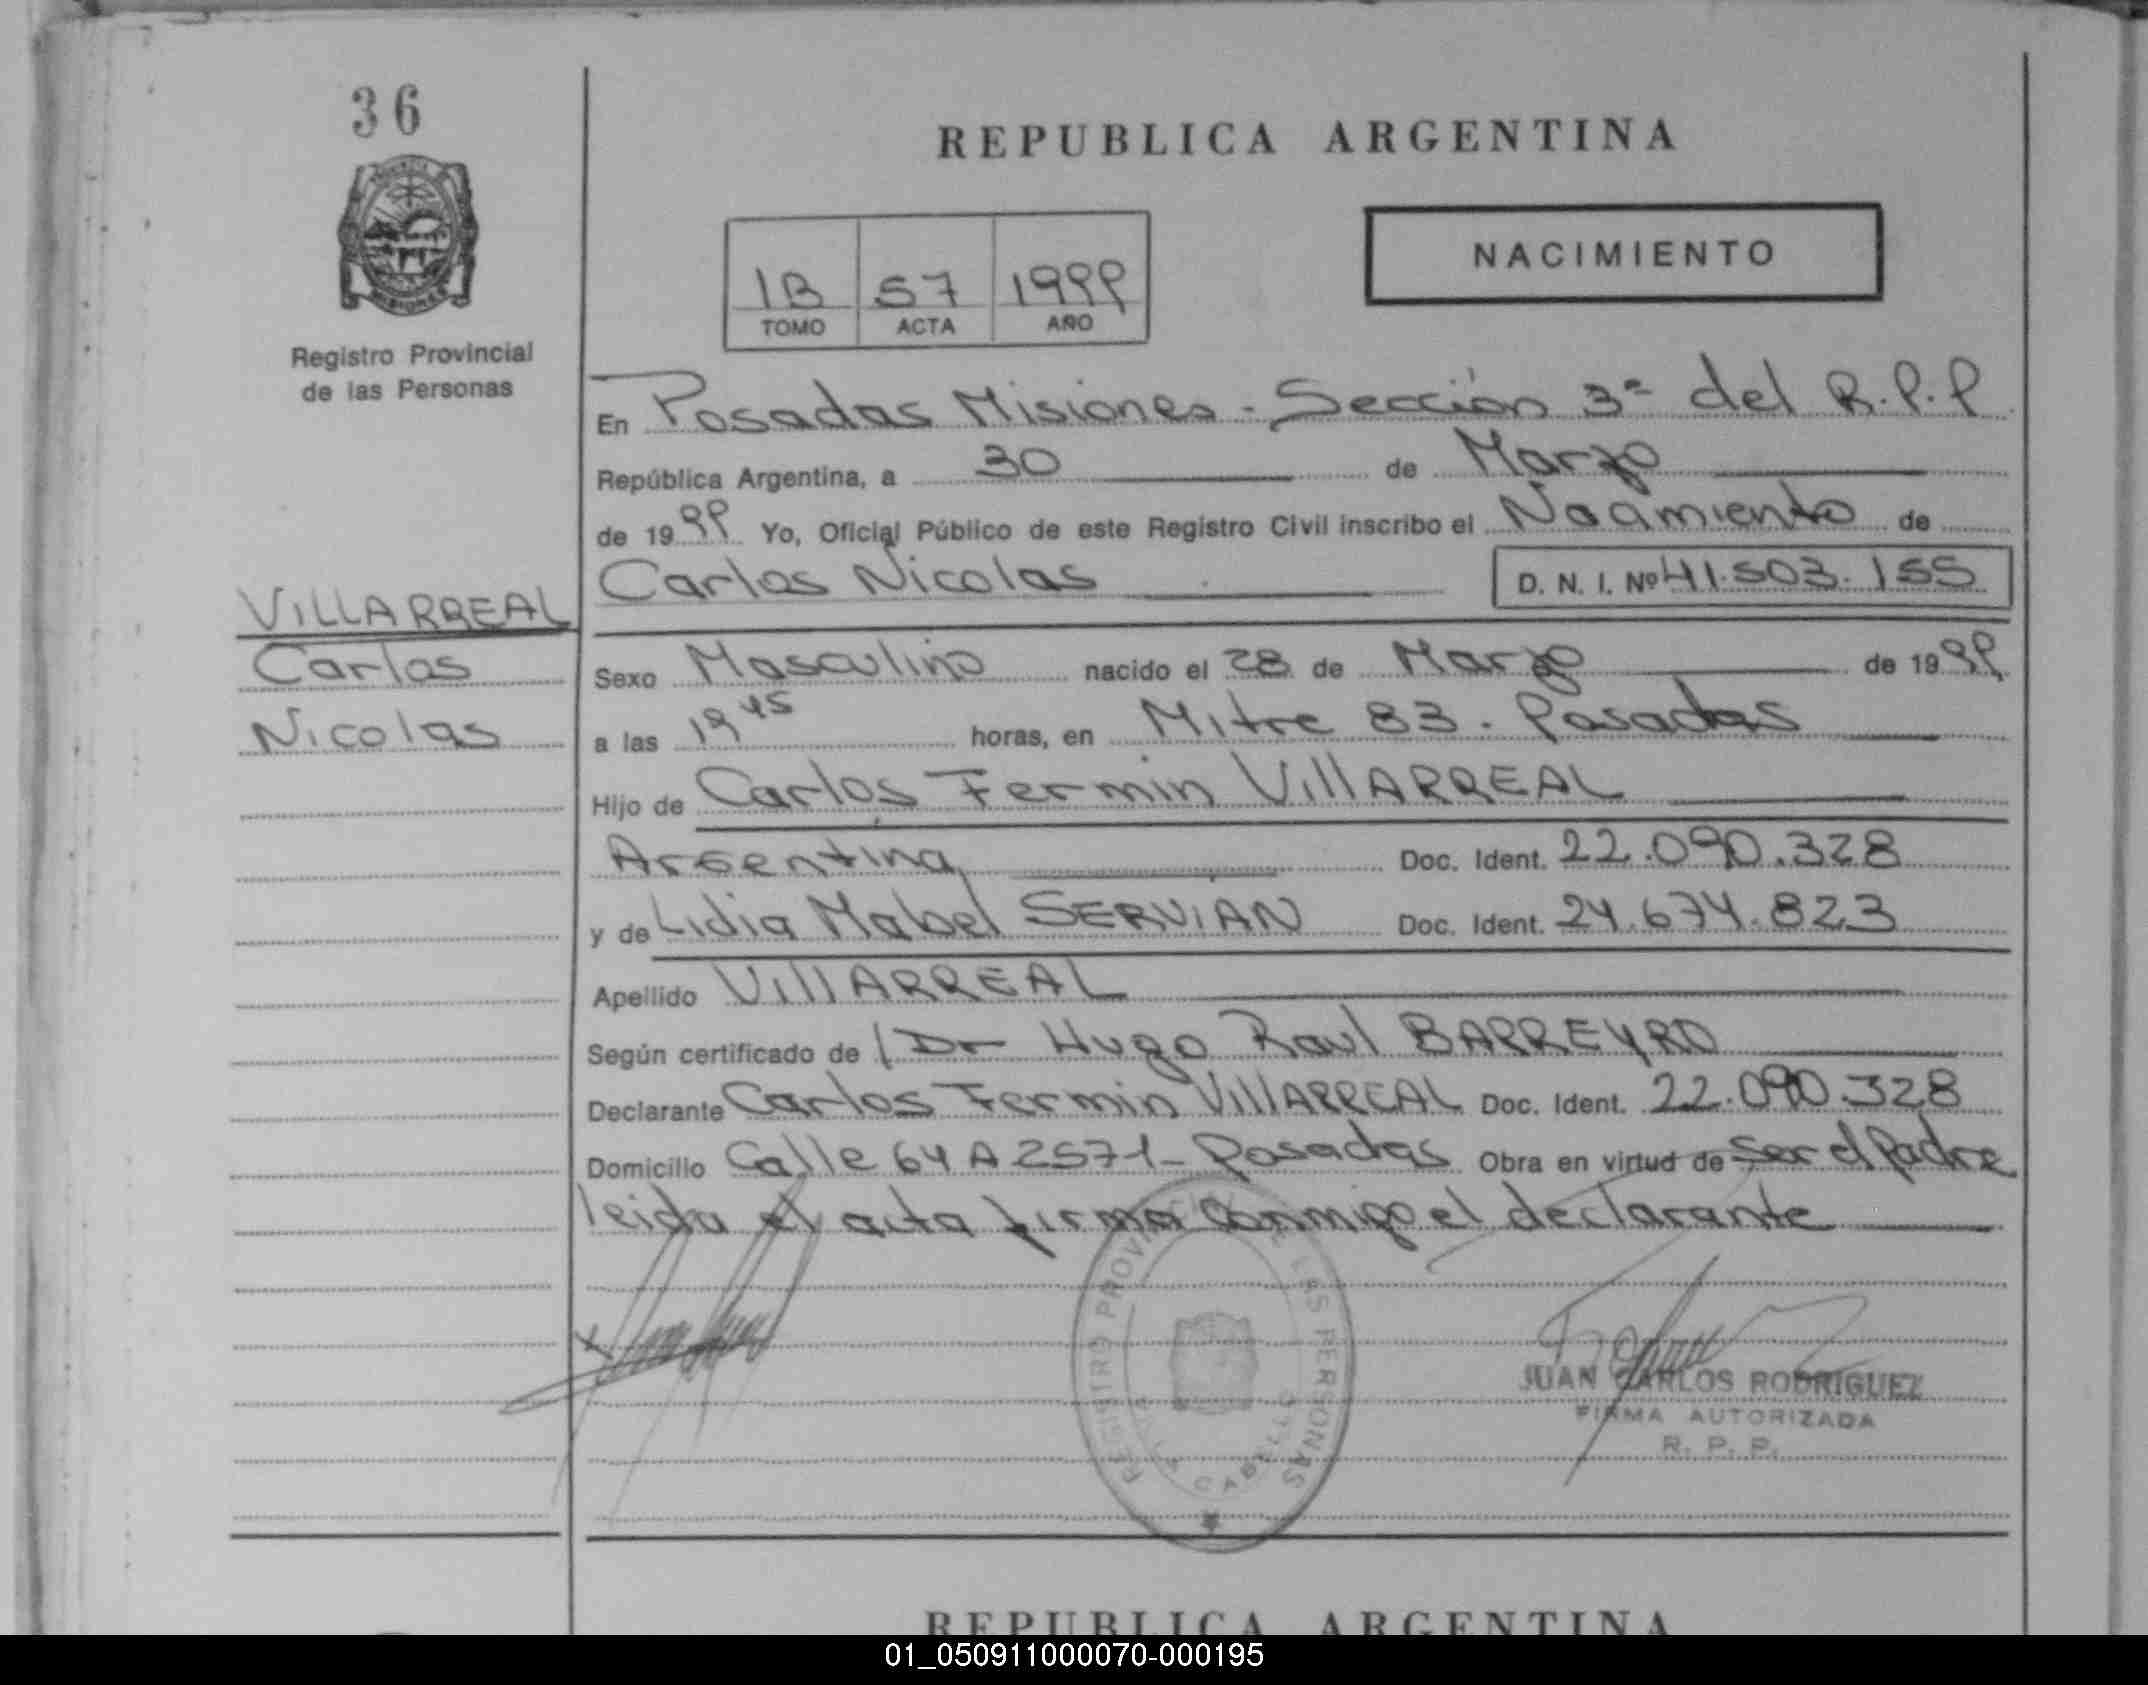 36
REPUBLICA ARGENTINA
NACIMIENTO
1B 57 1999
TOMO ACTA AÑO
Registro Provincial
de las Personas
En Posadas Misiones - Sección 3ª del R.P.P.
República Argentina, a 30 de Marzo
de 1999 Yo, Oficial Público de este Registro Civil inscribo el Nacimiento de
Carlos Nicolas D. N. I. Nº 41.503.155
VILLARREAL
Carlos
Nicolas
Sexo Masculino nacido el 28 de Marzo de 1999
a las 19 45 horas, en Mitre 83 - Posadas
Hijo de Carlos Fermin VillARREAL
Argentina Doc. Ident. 22.090.328
y de Lidia Mabel SERVIAN Doc. Ident. 24.674.823
Apellido VillARREAL
Según certificado de Dr Hugo Raul BARREYRO
Declarante Carlos Fermin VillARREAL Doc. Ident. 22.090.328
Domicilio Calle 64 A 2571 - Posadas Obra en virtud de Ser el Padre
leida el acta firma conmigo el declarante
REGISTRO PROVINCIAL DE LAS PERSONAS
CABELLO
JUAN CARLOS RODRIGUEZ
FIRMA AUTORIZADA
R. P. P.
REPUBLICA ARGENTINA
01_050911000070-000195